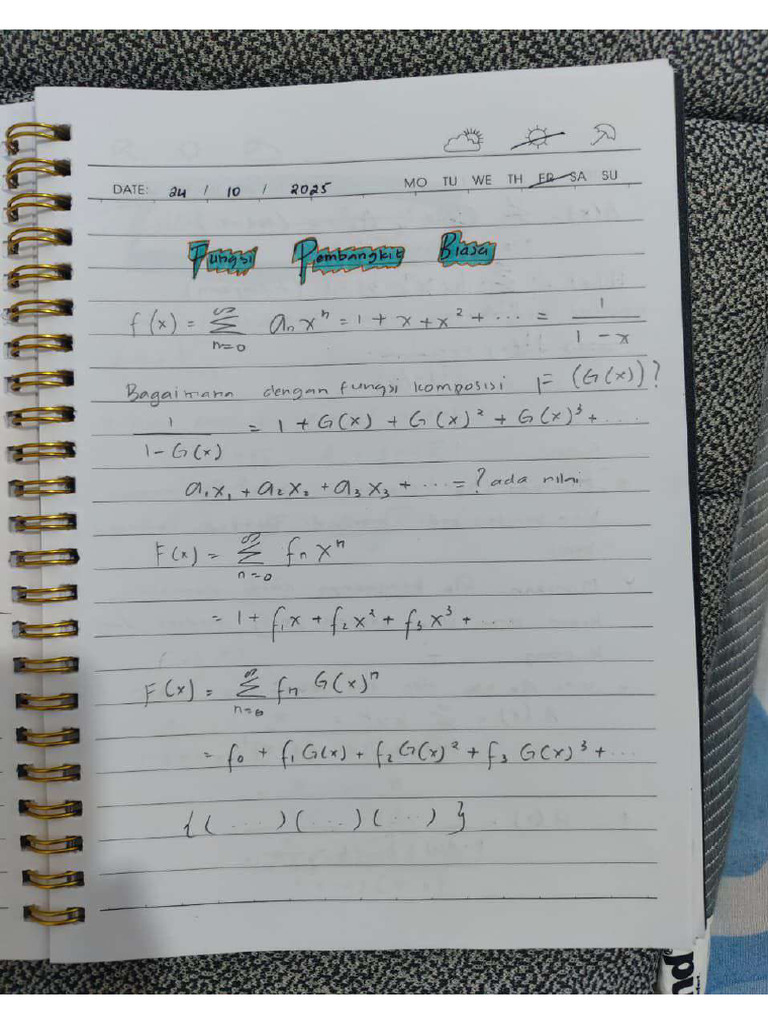 DATE: 24 / 10 / 2025 MO TU WE TH FR SA SU
Fungsi Pembangkit Biasa
f(x) = ∑_{n=0}^{∞} aₙxⁿ = 1 + x + x² + ... = 1/(1-x)
Bagaimana dengan fungsi komposisi F(G(x))?
1/(1-G(x)) = 1 + G(x) + G(x)² + G(x)³ + ...
a₁x₁ + a₂x₂ + a₃x₃ + ... = ? ada nilai
F(x) = ∑_{n=0}^{∞} fₙxⁿ
= 1 + f₁x + f₂x² + f₃x³ + ...
F(x) = ∑_{n=0}^{∞} fₙ G(x)ⁿ
= f₀ + f₁G(x) + f₂G(x)² + f₃G(x)³ + ...
{(...)(...)(...)}